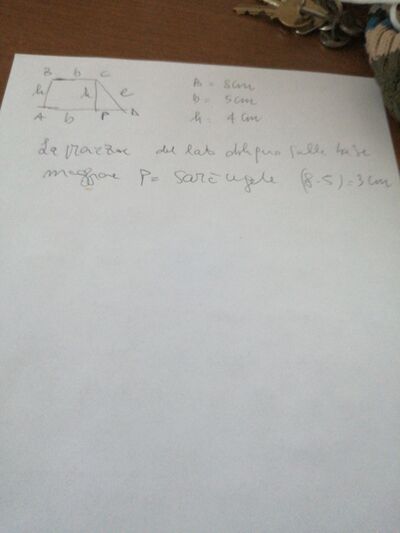 B b C
h h e
A b P D
B = 8cm
b = 5cm
h = 4cm
La proiezione del lato obliquo sulla base
maggiore P = sarà uguale (8-5)=3cm